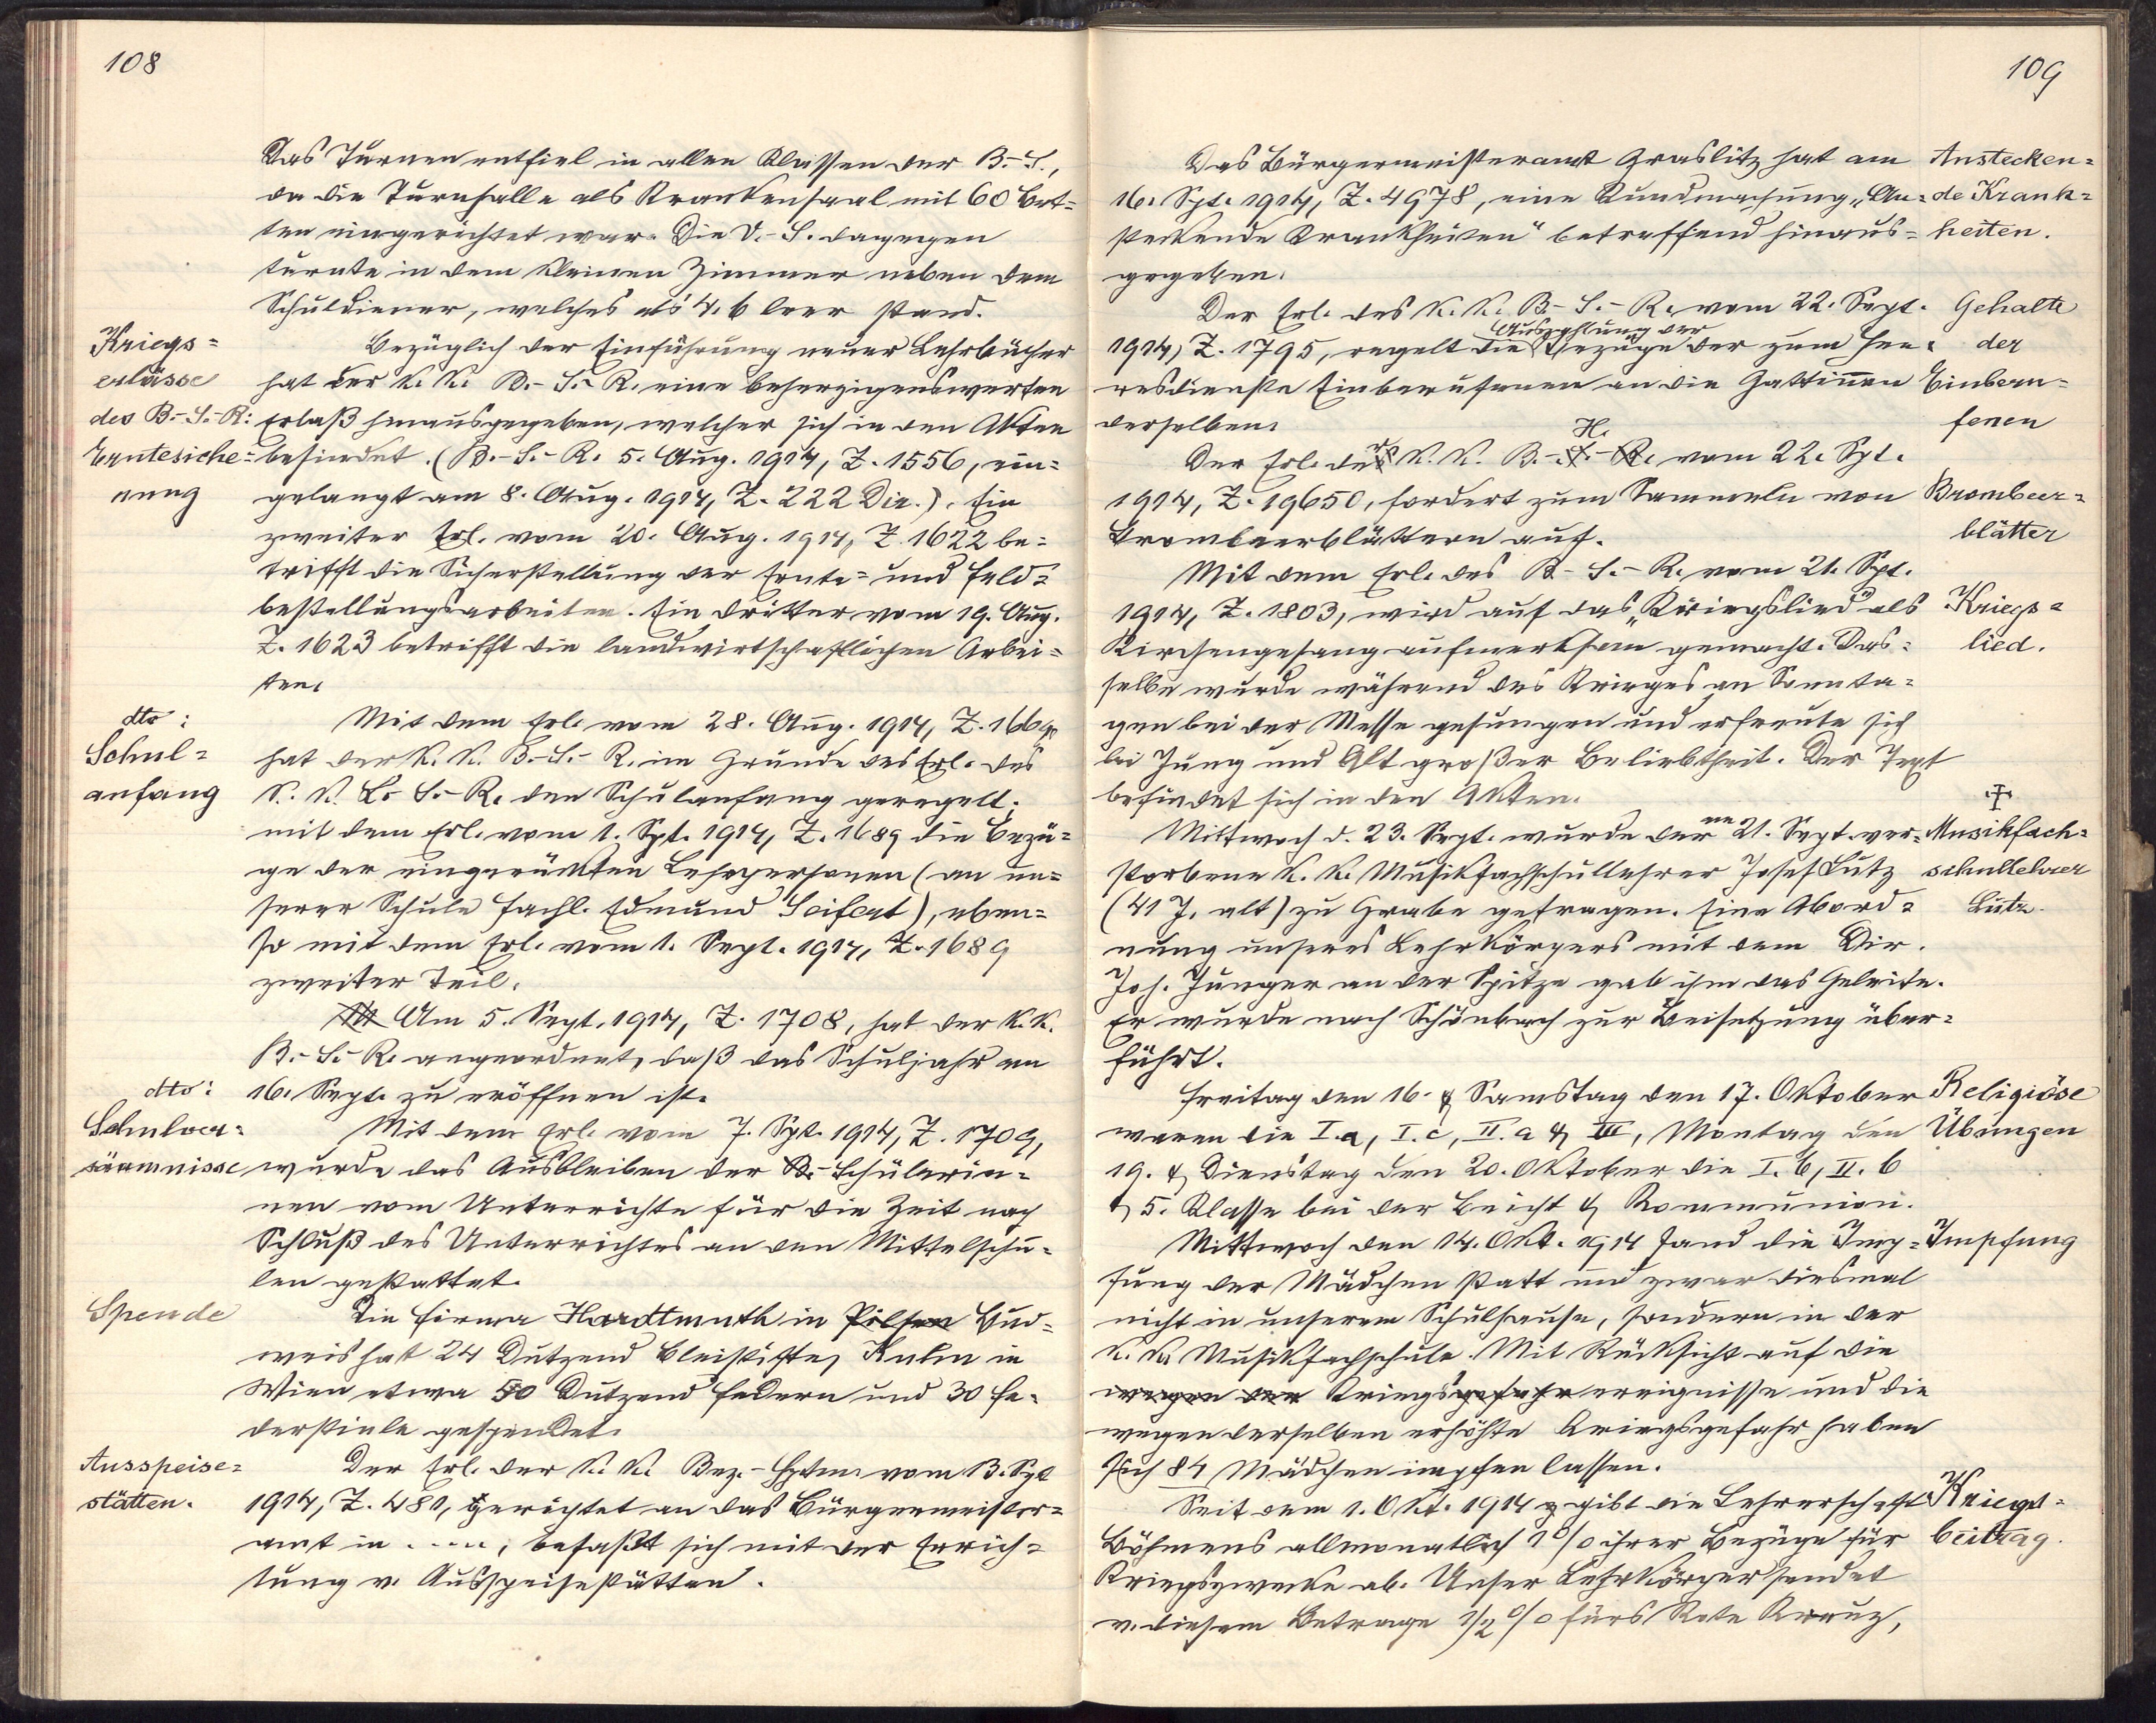 108
Das Turnen entfiel in allen Klassen der B.-S.,
da die Turnhalle als Krankensaal mit 60 Bet=
ten eingerichtet war. Die V.-S. dagegen
turnte in dem kleinen Zimmer neben dem
Schuldiener, welches als 4. b leer stand.
Kriegs=
erlässe
des B.-S.-R:
Erntesiche=
rung
Bezüglich der Einführung neuer Lehrbücher
hat der k. k. B.-S.-R. eine beherzigenswerten
Erlaß hinausgegeben, welcher sich in den Akten
befindet. (B.-S.-R. 5. Aug. 1914, Z. 1556, ein=
gelangt am 8. Aug. 1914, Z. 222 Dir.). Ein
zweiter Erl. vom 20. Aug. 1914, Z. 1622 be=
trifft die Sicherstellung der Ernte= und Feld=
bestellungsarbeiten. Ein dritter vom 19. Aug.
Z. 1623 betrifft die landwirtschaftlichen Arbei=
ten.
dto:
Schul=
anfang
Mit dem Erl. vom 28. Aug. 1914, Z. 1669
hat der k. k. B.-S.-R. im Grunde des Erl. des
k. k. L.-S.-R. den Schulanfang geregelt;
mit dem Erl. vom 1. Spt. 1914, Z. 1689 die Bezü=
ge der eingerückten Lehrpersonen (an un=
serer Schule Fachl. Edmund Seifert), eben=
so mit dem Erl. vom 1. Sept. 1914, Z. 1689
zweiter Teil.
Am 5. Sept. 1914, Z. 1708, hat der k. k.
B.-S.-R. angeordnet, daß das Schuljahr am
16. Sept. zu eröffnen ist.
dto:
Schulver=
säumnisse
Mit dem Erl. vom 7. Spt. 1914, Z. 1709,
wurde das Ausbleiben der B.-Schülerin=
nen vom Unterrichte für die Zeit nach
Schluß des Unterrichtes an den Mittelschu=
len gestattet.
Spende
Die Firma Hardtmuth in Pilsen Bud=
weis hat 24 Dutzend Bleistifte, Kuhn in
Wien etwa 50 Dutzend Federn und 30 Fe=
derstiele gespendet.
Ausspeise=
stätten.
Der Erl. der k. k. Bez.-Hptm. vom 13. Spt
1914, Z. 481, gerichtet an das Bürgermeister=
amt in ...., befaßt sich mit der Errich=
tung v. Ausspeisestätten.
109
Das Bürgermeisteramt Graslitz hat am
16. Spt. 1914, Z. 4978, eine Kundmachung „An=
steckende Krankheiten" betreffend hinaus=
gegeben.
Anstecken=
de Krank=
heiten.
Der Erl. des k. k. B.-S.-R. vom 22. Sept.
Auszahlung der
1914, Z. 1795, regelt die Bezüge der zum Hee=
resdienste Einberufenen an die Gattinen
derselben.
Gehalte
der
Einberu=
fenen
Der Erl. der k. k. B.-H. vom 22. Spt.
1914, Z. 19650, fordert zum Sammeln von
Brombeerblättern auf.
Brombeer=
blätter
Mit dem Erl. des B-S.-R. vom 21. Spt.
1914, Z. 1803, wird auf das „Kriegslied" als
Kirchengesang aufmerksam gemacht. Das=
selbe wurde während des Krieges an Sonnta=
gen bei der Messe gesungen und erfreute sich
bei Jung und Alt großer Beliebtheit. Der Text
befindet sich in den Akten.
Kriegs=
lied.
Mittwoch d. 23. Sept. wurde der am 21. Sept. ver=
storbene k. k. Musikfachschullehrer Josef Lutz
(41 J. alt) zu Grabe getragen. Eine Abord=
nung unseres Lehrkörpers mit dem Dir.
Joh. Junger an der Spitze gab ihm das Geleite.
Er wurde nach Schönbach zur Beisetzung über=
führt.
Musikfach=
schullehrer
Lutz.
Freitag den 16. & Samstag den 17. Oktober
waren die I. a, I. c, II. a & III, Montag den
19. & Dienstag den 20. Oktober die I. b, II. b
& 5. Klasse bei der Beicht & Kommunion.
Religiöse
Übungen
Mittwoch den 14. Okt. 1914 fand die Imp=
fung der Mädchen statt und zwar diesmal
nicht in unserem Schulhause, sondern in der
k. k. Musikfachschule. Mit Rücksicht auf die
wegen der Kriegsgefahr ereignisse und die
wegen derselben erhöhte Kriegsgefahr haben
sich 84 Mädchen impfen lassen.
Impfung
Seit dem 1. Okt. 1914 gibt die Lehrerschaft
Böhmens allmonatlich 1% ihrer Bezüge für
Kriegszwecke ab. Unser Lehrkörper sendet
v. diesem Betrage 1/2% fürs Rote Kreuz,
Kriegs=
beitrag.